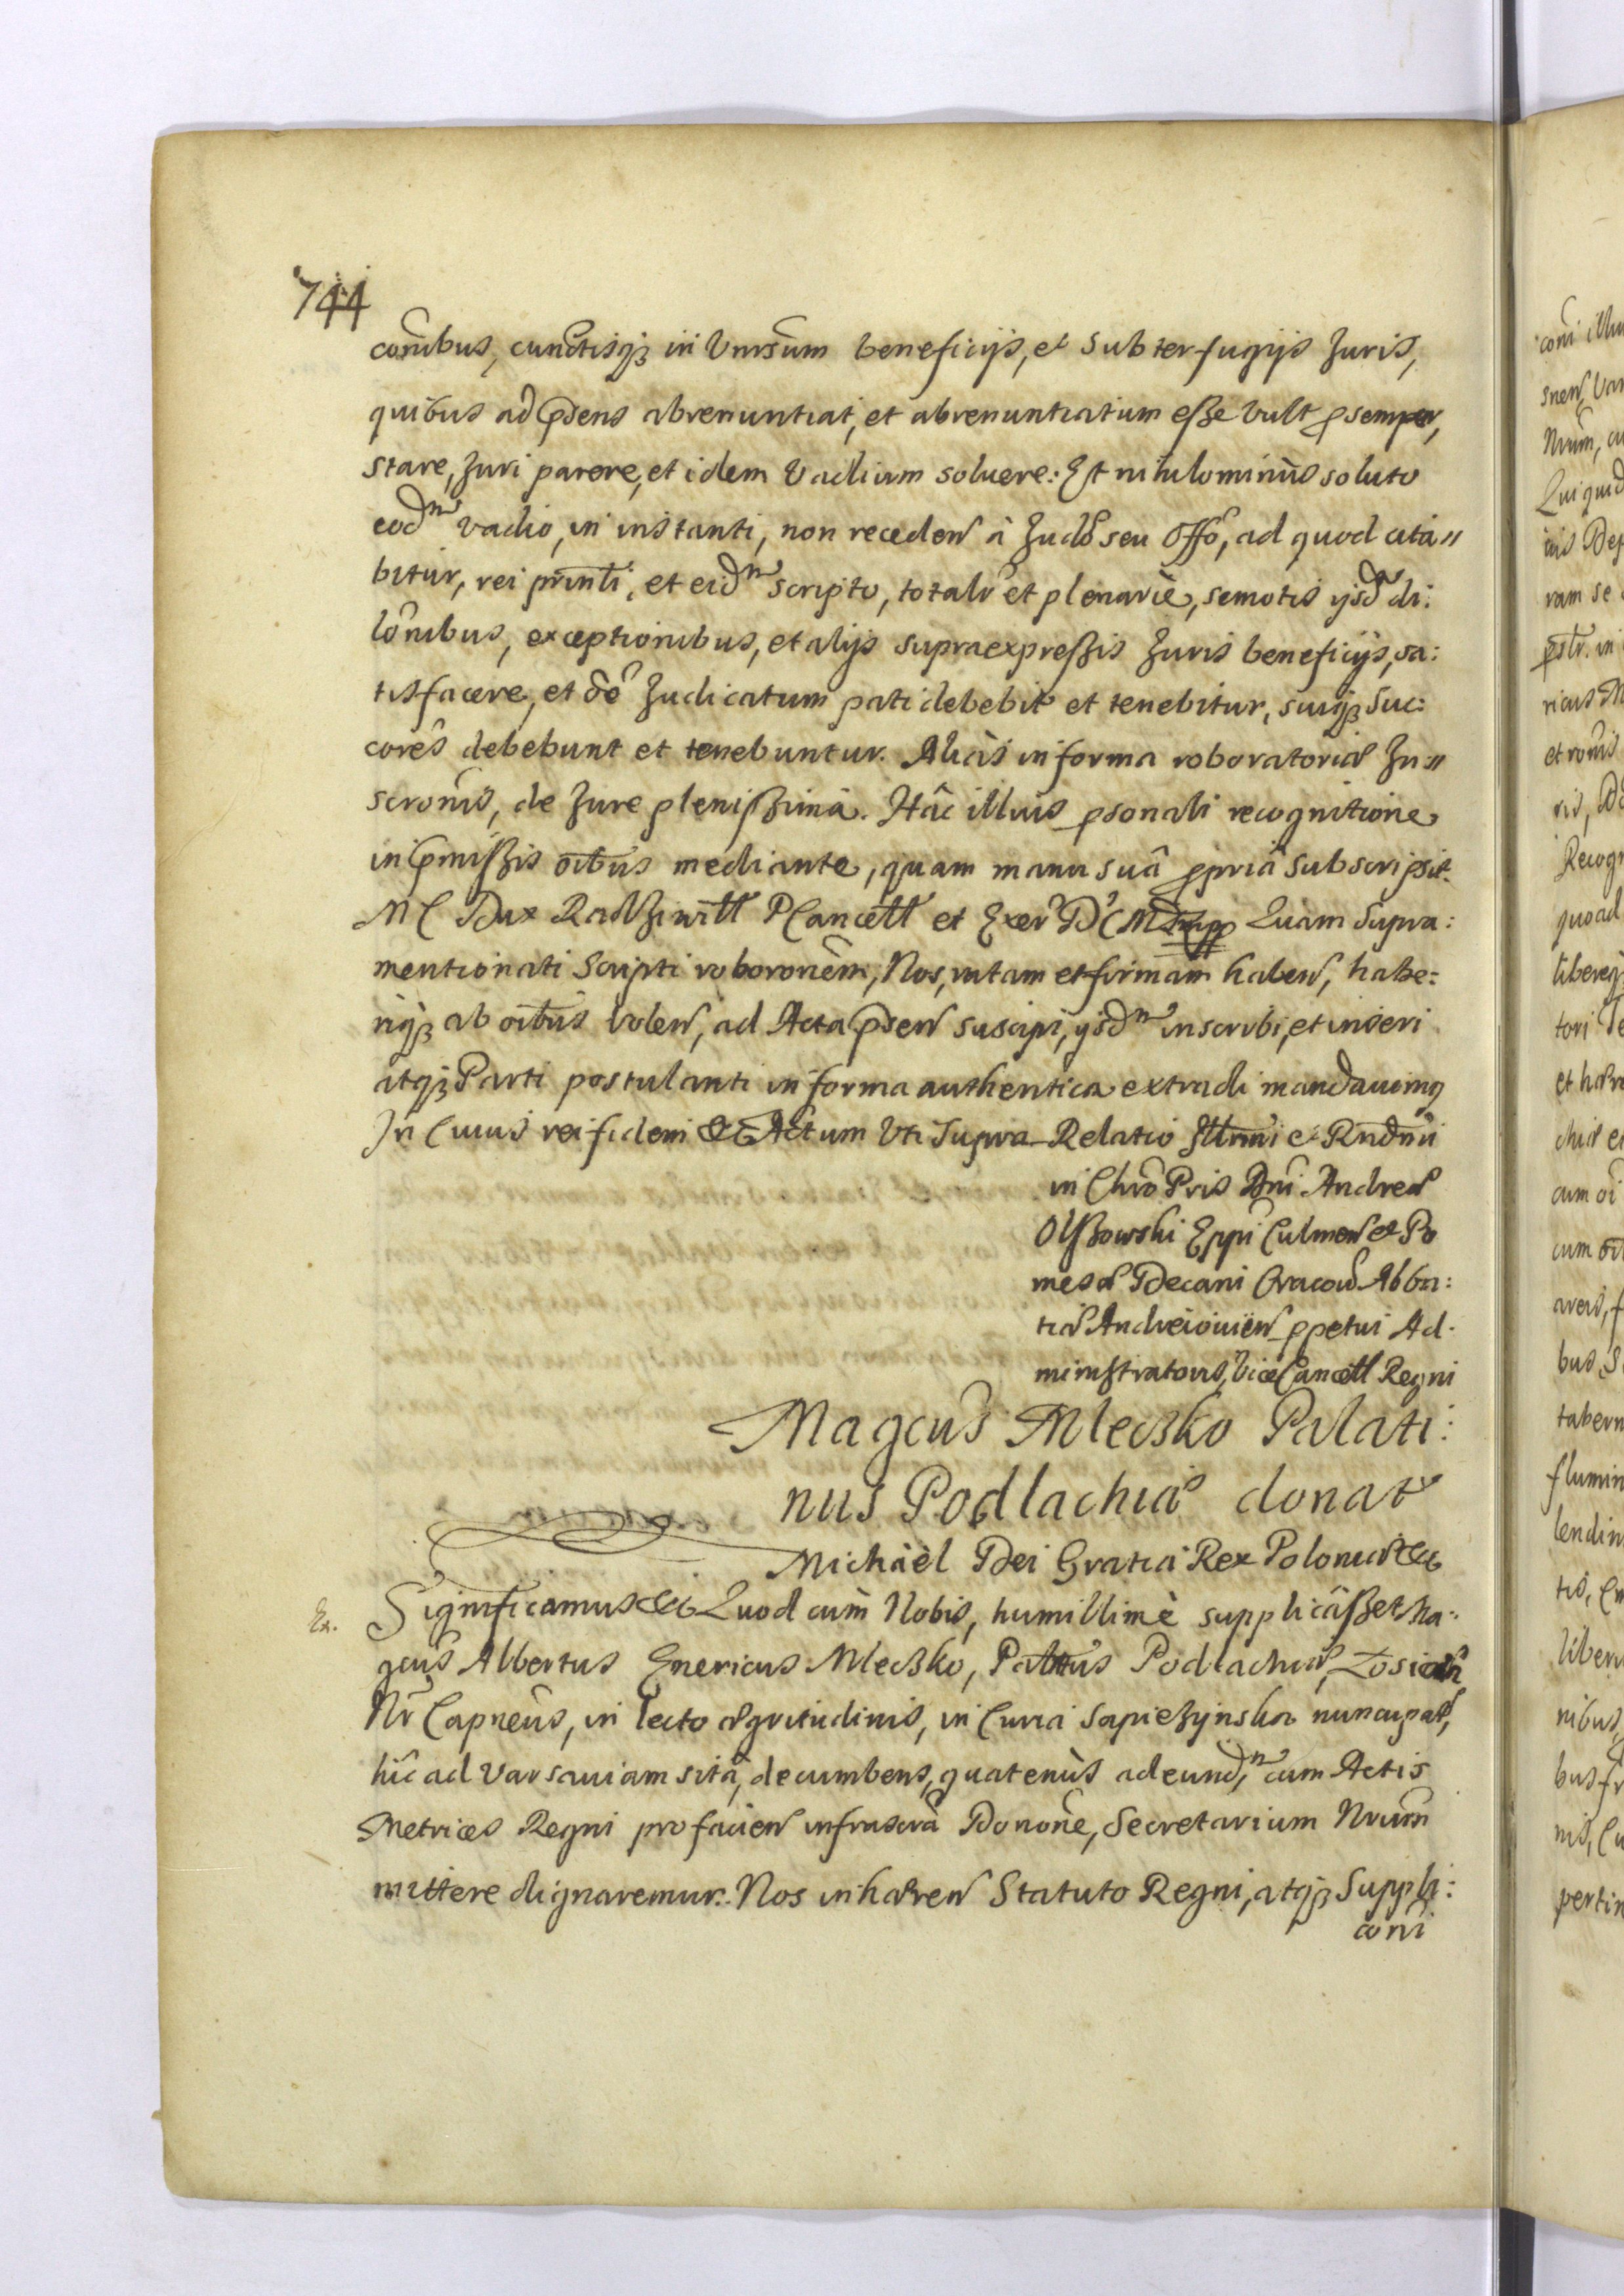 744
coñibus, cunctisqȝ in Vnrsum beneficijs, et subterfugijs Juris,
quibus ad psens abrenuntiat, et abrenuntiatum esse vult p semper,
stare, Juri parere, et idem Vadium soluere: Et nihilominùs soluto
eodm vadio, in instanti, non receden à Judo seu Offo, ad quod cita〃
bitur, rei prinli, et eidm scripto, totalr et plenariè, semotis ijsd di:
lonibus, exceptionibus, et alijs supraexpressis Juris beneficijs, sa:
tisfacere, et de Judicatum pati debebit et tenebitur, suiqȝ Suc:
cores debebunt et tenebuntur. Aliàs in forma roboratoriæ In〃
scronis, de Jure plenissimâ. Hâc illius psonali recognitione
in pmissis oibus mediante, quam manu suâ ppriâ subscripsit.
M C Dux Radziwill PCancell et Exer D C M mpp Quam supra:
mentionati Scripti roboronem, Nos, ratam et firmam haben, habe:
riqȝ ab oibus volen, ad Acta psen suscipi, ijsdm inscribi, et inseri
atqȝ Parti postulanti in forma authentica extradi mandauimq
In Cuius rei fidem &c Actum Vti Supra Relatio Illrmi et Rndmi
in Chro Pris Dni Andreæ
Olszowski Eppi Culmen et Po
mesa Decani Cracou Abba:
tiæ Andreiouien ppetui Ad:
ministratoris, Vice Cancell Regni
Magcus Mleczko Palati:
nus Podlachiæ donat
Michäèl Dei Gratia Rex Poloniæ &c
Ex. Significamus &c Quod cùm Nobis, humillimè supplicâsset Ma:
gcus Albertus Emericus Mleczko, Palttus Podlachiæ,
Nr Capneus, in lecto ægritudinis, in Curia Sapieżynska nuncupat,
hic ad Varsauiam sitâ, decumbens, quatenùs ad eundm, cum Actis
Metrices Regni pro facien infrascra Donone, Secretarium Nrum
mittere dignaremur. Nos inhæren Statuto Regni, atqȝ Suppli:
coni